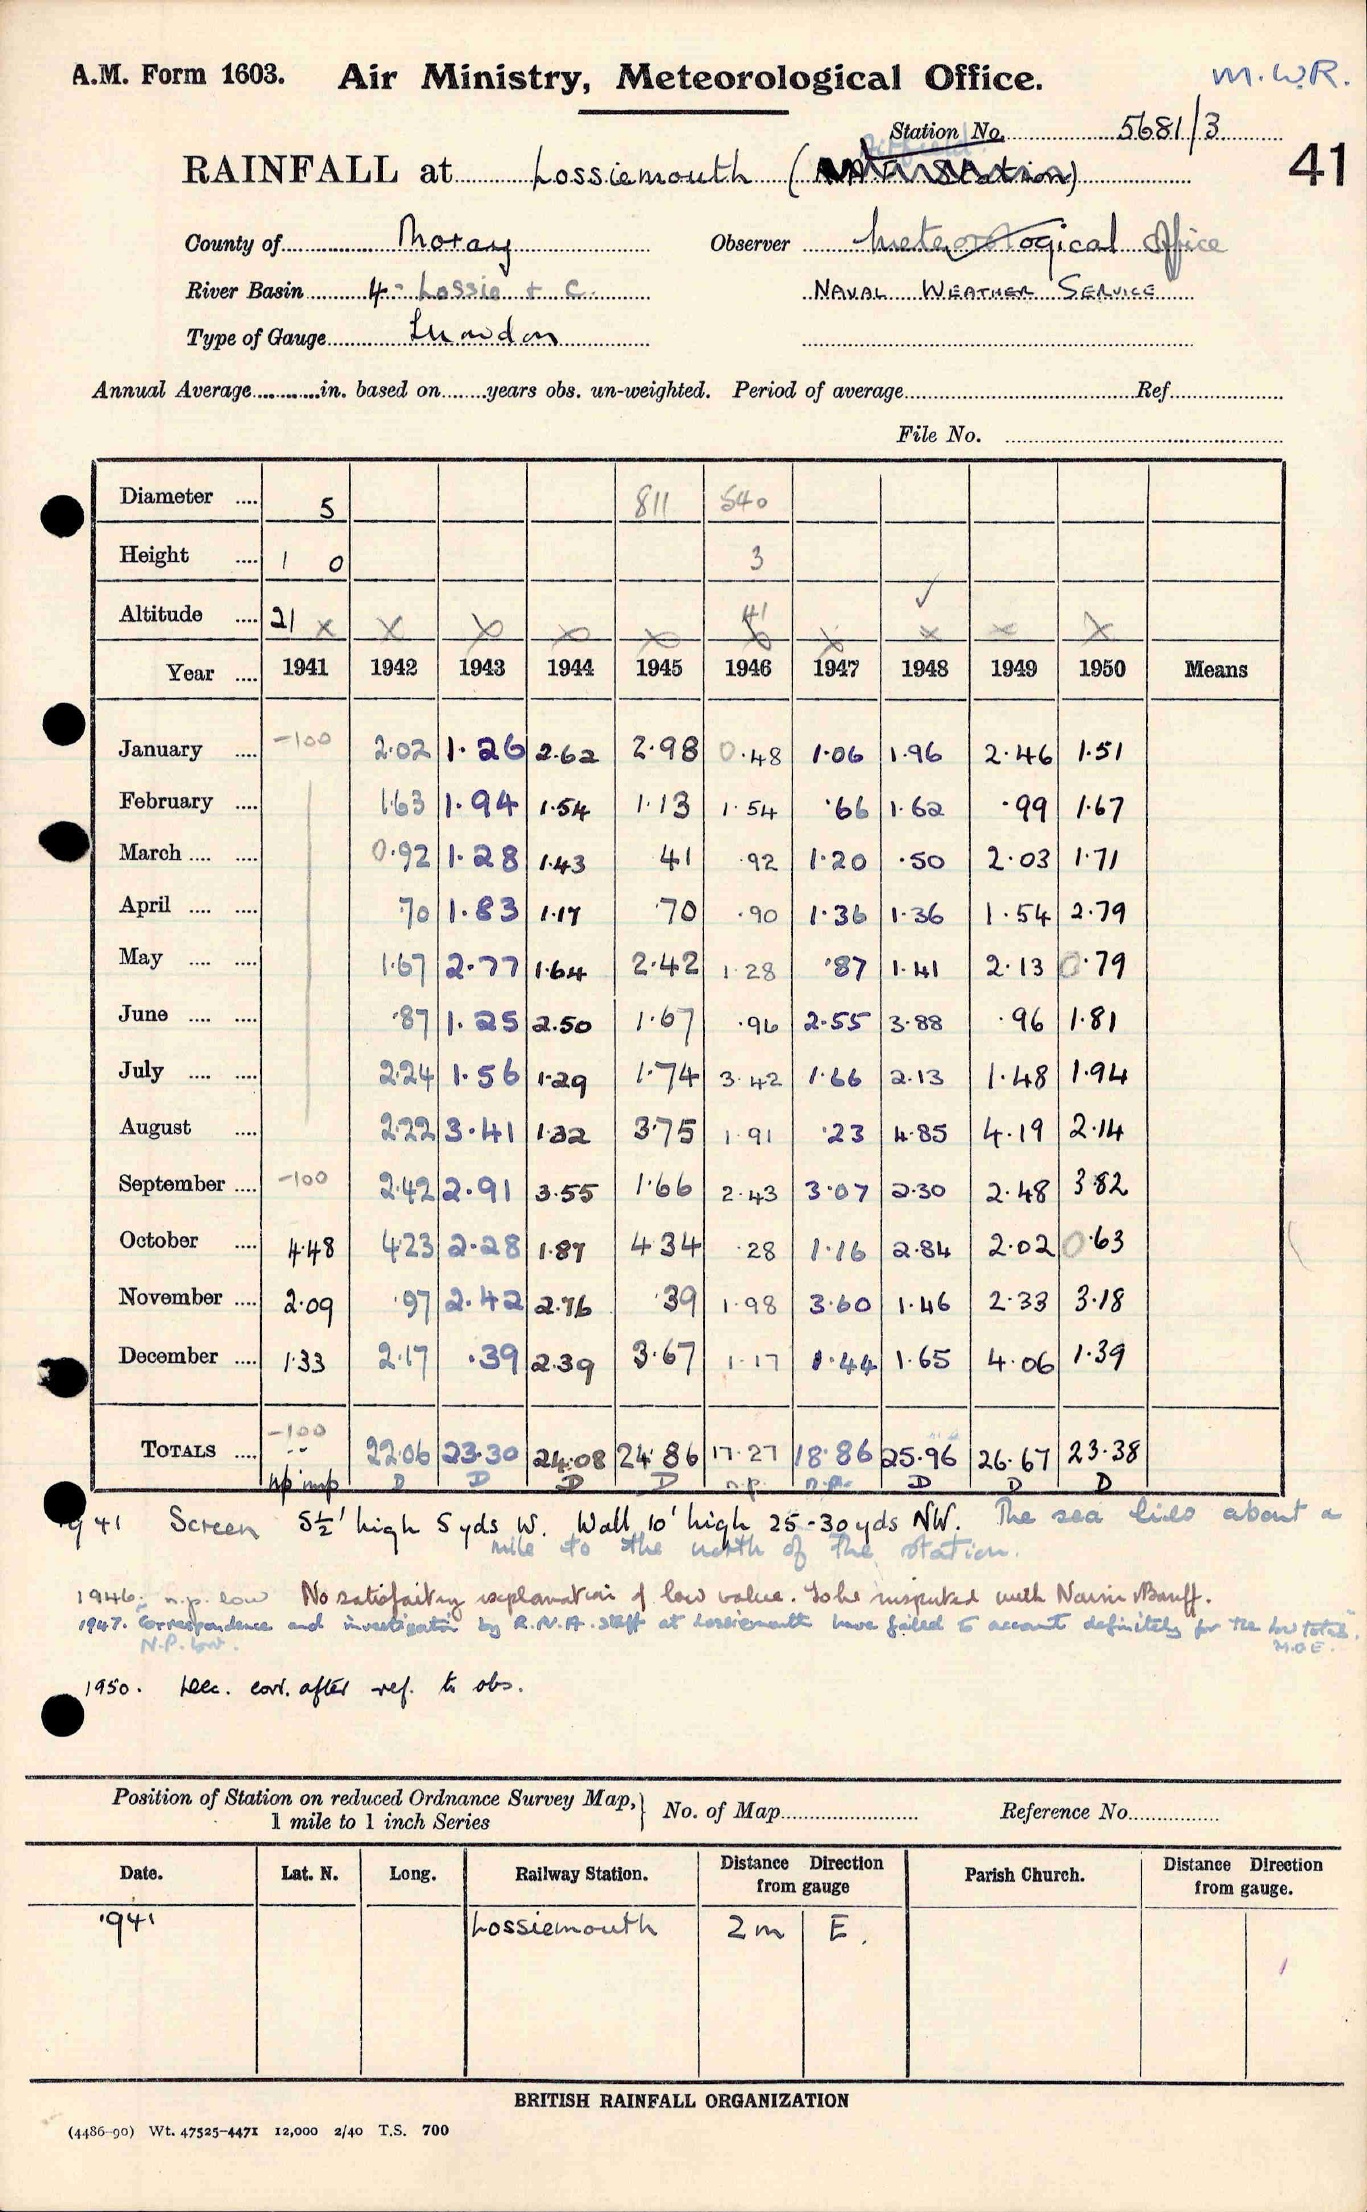 A.M. Form 1603. Air Ministry, Meteorological Office. M.W.R.
Station No. 5681/3
RAINFALL at Lossiemouth (Airfield Station) 41
County of Moray Observer Meteorological Office
River Basin 4 - Lossie + C. NAVAL WEATHER SERVICE
Type of Gauge Snowdon
Annual Average in. based on years obs. un-weighted. Period of average Ref.
File No.
Diameter 5 811 540
Height 1 0 3
Altitude 21 x x x x x 41 x x ✓ x x x
Year 1941 1942 1943 1944 1945 1946 1947 1948 1949 1950 Means
January -100 2.02 1.26 2.62 2.98 0.48 1.06 1.96 2.46 1.51
February 1.63 1.94 1.54 1.13 1.54 .66 1.62 .99 1.67
March 0.92 1.28 1.43 .41 .92 1.20 .50 2.03 1.71
April .70 1.83 1.17 .70 .90 1.36 1.36 1.54 2.79
May 1.67 2.77 1.64 2.42 1.28 .87 1.41 2.13 0.79
June .87 1.25 2.50 1.67 .96 2.55 3.88 .96 1.81
July 2.24 1.56 1.29 1.74 3.42 1.66 2.13 1.48 1.94
August 2.22 3.41 1.32 3.75 1.91 .23 4.85 4.19 2.14
September -100 2.42 2.91 3.55 1.66 2.43 3.07 2.30 2.48 3.82
October 4.48 4.23 2.28 1.87 4.34 .28 1.16 2.84 2.02 0.63
November 2.09 .97 2.42 2.76 .39 1.98 3.60 1.46 2.33 3.18
December 1.33 2.17 .39 2.39 3.67 1.17 1.44 1.65 4.06 1.39
TOTALS -100 -- 22.06 23.30 24.08 24.86 17.27 18.86 25.96 26.67 23.38
np imp D D D D n.p. n.p. D D D
1941 Screen 5½' high 5 yds W. Wall 10' high 25-30 yds NW. The sea lies about a
mile to the north of the station.
1946: n.p. low No satisfaitry explanation of low value. To be inspected with Nairn & Banff.
1947. Correspondence and investigation by R.N.A. staff at Lossiemouth have failed to account definitely for the low total.
N.P. low. M.O.E.
1950. Dec. corr. after ref. to obs.
Position of Station on reduced Ordnance Survey Map,
1 mile to 1 inch Series } No. of Map Reference No.
Date. Lat. N. Long. Railway Station. Distance Direction from gauge Parish Church. Distance Direction from gauge.
1941 Lossiemouth 2 m E.
BRITISH RAINFALL ORGANIZATION
(4486-90) Wt. 47525-4471 12,000 2/40 T.S. 700